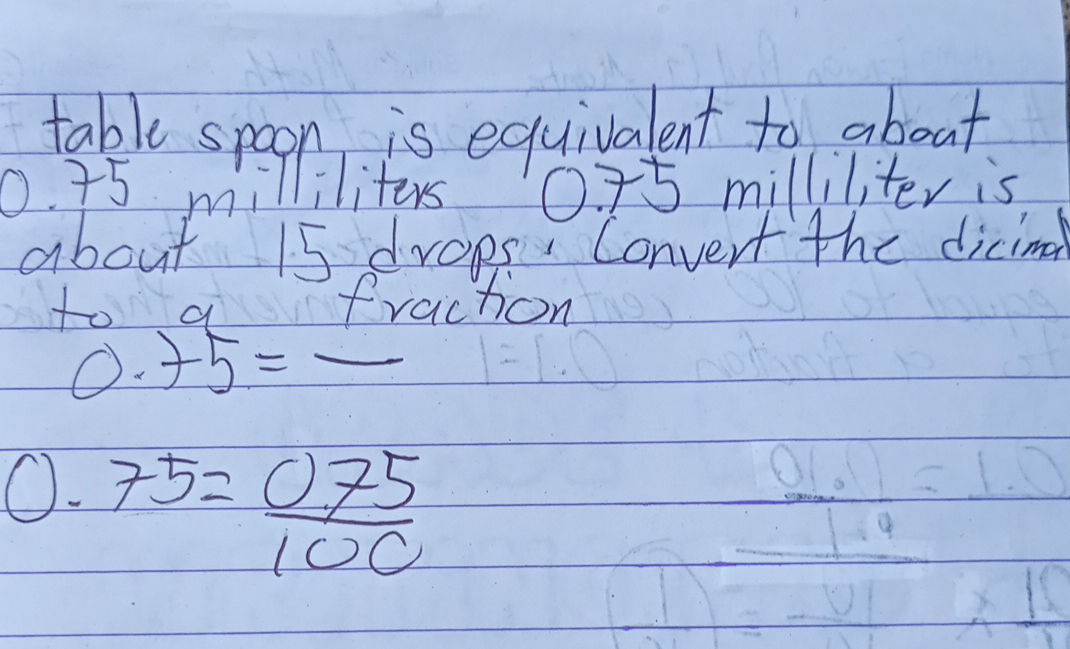 table spoon is equivalent to about
0.75 milliliters 0.75 milliliter is
about 15 drops. Convert the dicimal
to a fraction
0.75 = —
0.75 = 0.75
100